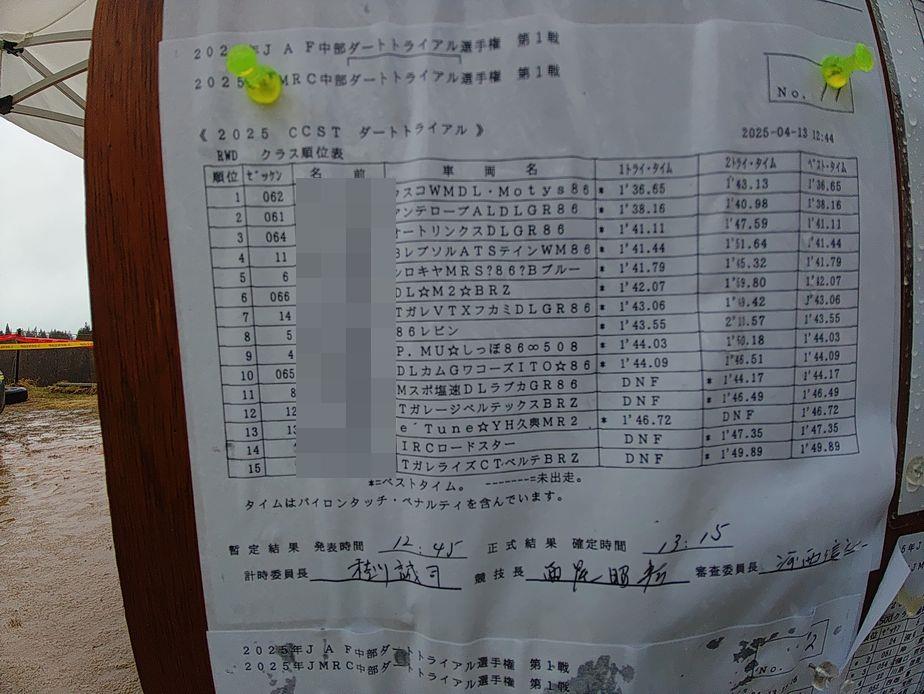 2025年JAF中部ダートトライアル選手権 第1戦
2025 JMRC中部ダートトライアル選手権 第1戦
No. 11
《2025 CCST ダートトライアル》 2025-04-13 12:44
RWD クラス順位表
順位 ゼッケン 名 前 車 両 名 1トライ・タイム 2トライ・タイム ベスト・タイム
1 062 スコWMDL・Motys86 * 1'36.65 1'43.13 1'36.65
2 061 ンテローブALDLGR86 * 1'38.16 1'40.98 1'38.16
3 064 オートリンクスDLGR86 * 1'41.11 1'47.59 1'41.11
4 11 レプソルATSテインWM86 * 1'41.44 1'51.64 1'41.44
5 6 ロキヤMRS?86?Bブルー * 1'41.79 1'45.32 1'41.79
6 066 DL☆M2☆BRZ * 1'42.07 .80 1'42.07
7 14 TガレVTXフカミDLGR86 * 1'43.06 .42 1'43.06
8 5 86レビン * 1'43.55 .57 1'43.55
9 4 P.MU☆しっぽ86∞508 * 1'44.03 .18 1'44.03
10 065 DLカムGワコーズITO☆86 * 1'44.09 1'46.51 1'44.09
11 8 Mスポ塩速DLラブカGR86 DNF * 1'44.17 1'44.17
12 12 TガレージベルテックスBRZ DNF * 1'46.49 1'46.49
13 13 e´Tune☆YH久興MR2 * 1'46.72 DNF 1'46.72
14 IRCロードスター DNF * 1'47.35 1'47.35
15 TガレライズCTベルテBRZ DNF * 1'49.89 1'49.89
*=ベストタイム。 -------=未出走。
タイムはパイロンタッチ・ペナルティを含んでいます。
暫定結果 発表時間 12:45 正式結果 確定時間 13:15
計時委員長 誠司 競技長 審査委員長 河西
2025年JAF中部ダートトライアル選手権 第1戦
2025年JMRC中部ダートトライアル選手権 第1戦
No. 2